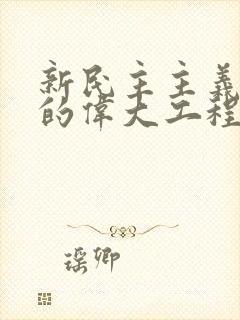 新民主主義
的偉大工程
瑶卿